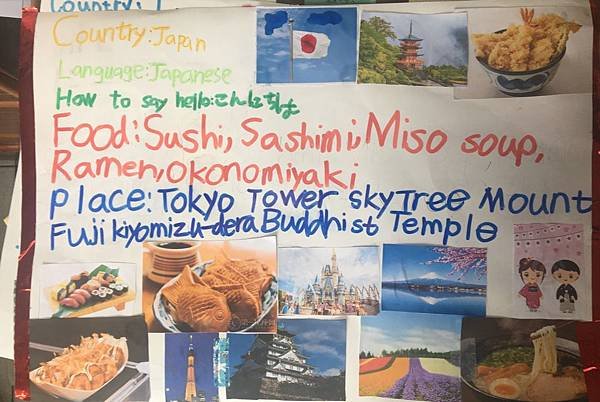 Country:
Country:Japan
Language:Japanese
How to say hello:こんにちは
Food:Sushi, Sashimi, Miso soup,
Ramen,Okonomiyaki
Place:Tokyo Tower SkyTree Mount
Fuji kiyomizu-dera Buddhist Temple